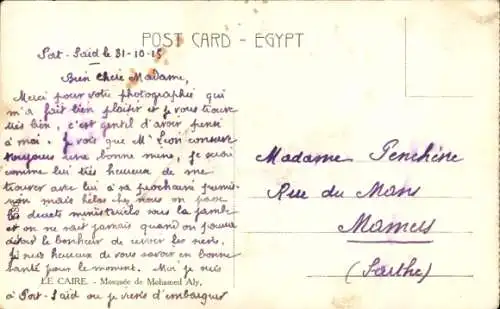 POST CARD - EGYPT
Port-Saïd le 31-10-15
Bien Chère Madame,
Merci pour votre photographie qui
m'a fait bien plaisir et je vous trouve
très bien, c'est gentil d'avoir pensé
à moi. Je vois que Mr Léon conserve
toujours une bonne mine, je serai
comme lui très heureux de me
trouver avec lui à sa prochaine permis-
sion mais hélas chez nous on
les décrets ministériels sous la jambe
et on ne sait jamais quand on pourra
avoir le bonheur de revoir les siens.
Je suis heureux de vous savoir en bonne
santé pour le moment. Moi je suis
LE CAIRE. - Mosquée de Mohamed Aly.
à Port-Saïd où je viens d'embarquer
Madame Penchêne
Rue du Mans
Mamers
(Sarthe)